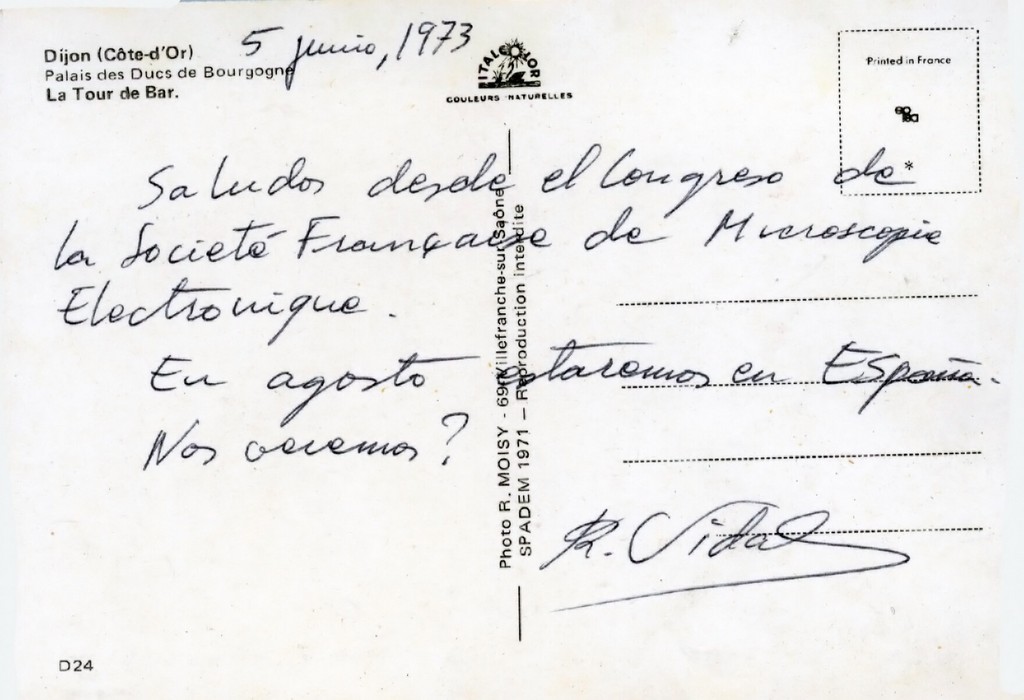 Dijon (Côte-d'Or)
Palais des Ducs de Bourgogne
La Tour de Bar.
5 junio, 1973
ITALCOLOR
COULEURS NATURELLES
Printed in France
Saludos desde el Congreso de
la Societé Française de Microscopie
Electronique.
En agosto estaremos en España.
Nos veremos?
R. Vidal
Photo R. MOISY - 69 Villefranche-sur-Saône
SPADEM 1971 — Reproduction interdite
D24